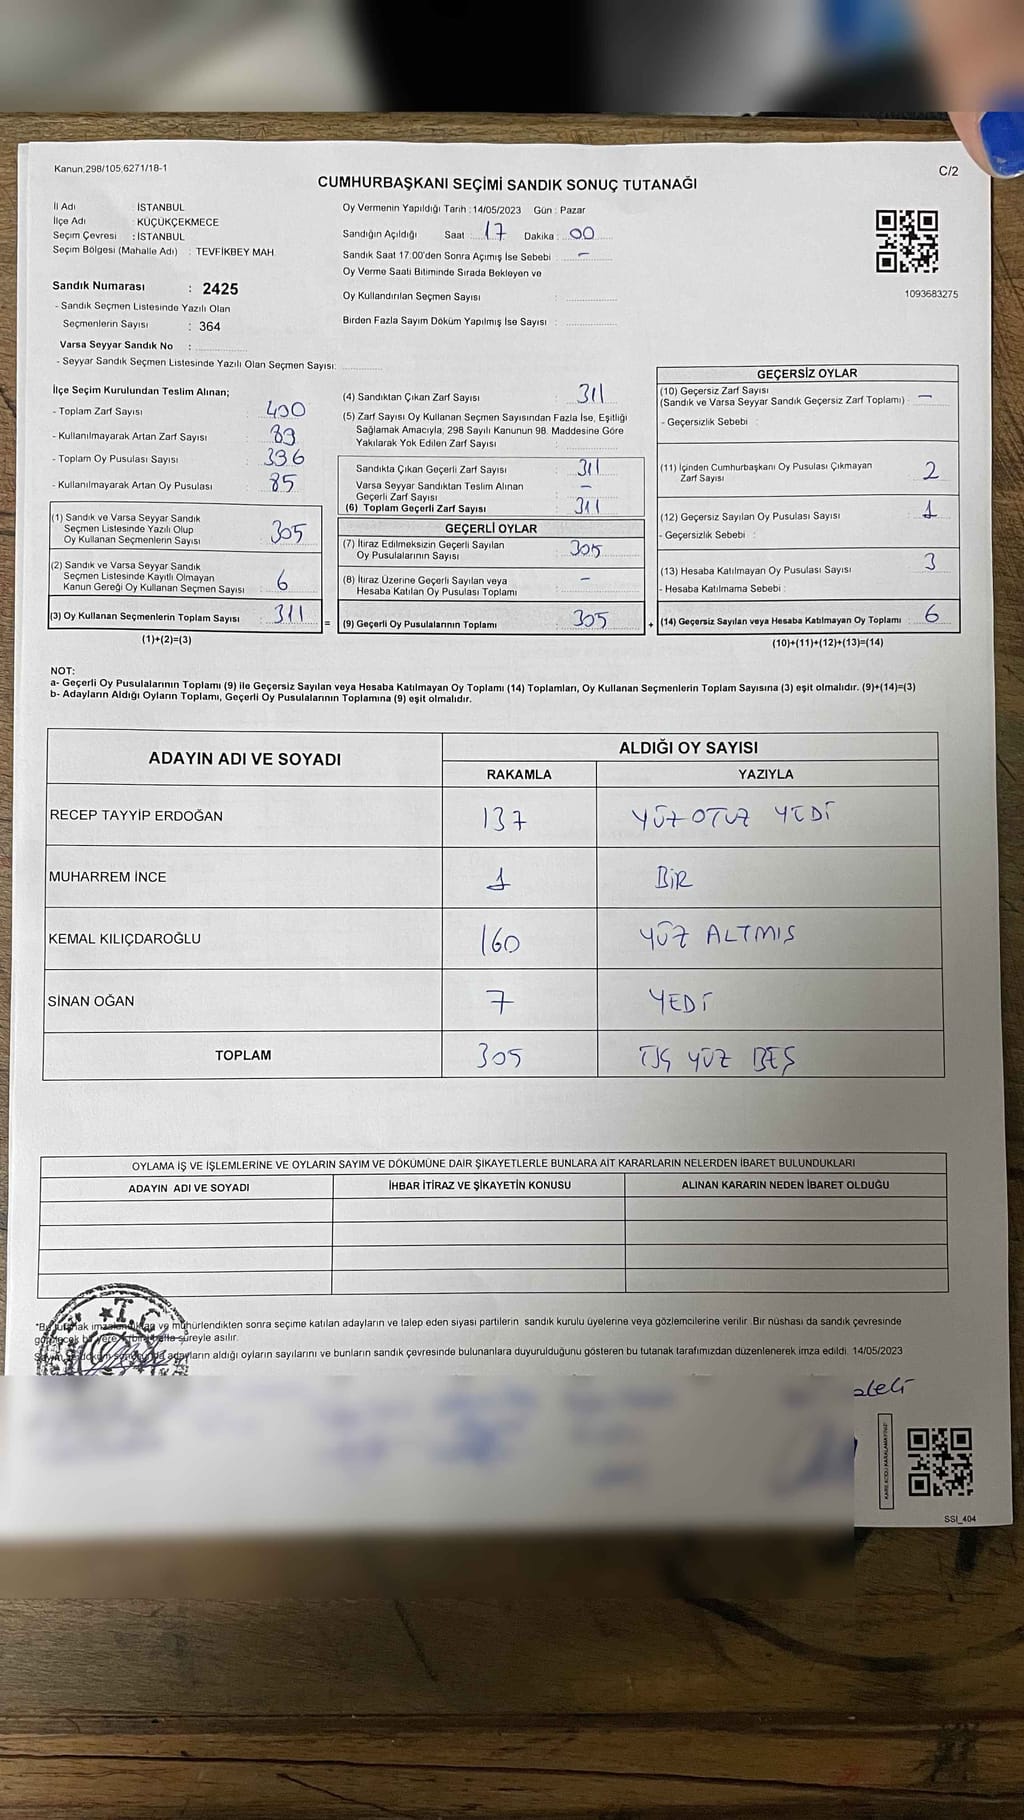 Kanun.298/105,6271/18-1
C/2
CUMHURBAŞKANI SEÇİMİ SANDIK SONUÇ TUTANAĞI
İl Adı : İSTANBUL
İlçe Adı : KÜÇÜKÇEKMECE
Seçim Çevresi : İSTANBUL
Seçim Bölgesi (Mahalle Adı) : TEVFİKBEY MAH.
Sandık Numarası : 2425
- Sandık Seçmen Listesinde Yazılı Olan
Seçmenlerin Sayısı : 364
Varsa Seyyar Sandık No :
- Seyyar Sandık Seçmen Listesinde Yazılı Olan Seçmen Sayısı:
Oy Vermenin Yapıldığı Tarih : 14/05/2023 Gün : Pazar
Sandığın Açıldığı Saat : 17 Dakika : 00
Sandık Saat 17:00'den Sonra Açımış İse Sebebi : -
Oy Verme Saati Bitiminde Sırada Bekleyen ve
Oy Kullandırılan Seçmen Sayısı :
Birden Fazla Sayım Döküm Yapılmış İse Sayısı :
1093683275
İlçe Seçim Kurulundan Teslim Alınan;
- Toplam Zarf Sayısı : 400
- Kullanılmayarak Artan Zarf Sayısı : 89
- Toplam Oy Pusulası Sayısı : 396
- Kullanılmayarak Artan Oy Pusulası : 85
(1) Sandık ve Varsa Seyyar Sandık
Seçmen Listesinde Yazılı Olup
Oy Kullanan Seçmenlerin Sayısı : 305
(2) Sandık ve Varsa Seyyar Sandık
Seçmen Listesinde Kayıtlı Olmayan
Kanun Gereği Oy Kullanan Seçmen Sayısı : 6
(3) Oy Kullanan Seçmenlerin Toplam Sayısı : 311
(1)+(2)=(3)
(4) Sandıktan Çıkan Zarf Sayısı : 311
(5) Zarf Sayısı Oy Kullanan Seçmen Sayısından Fazla İse, Eşitliği
Sağlamak Amacıyla; 298 Sayılı Kanunun 98. Maddesine Göre
Yakılarak Yok Edilen Zarf Sayısı :
Sandıkta Çıkan Geçerli Zarf Sayısı : 311
Varsa Seyyar Sandıktan Teslim Alınan
Geçerli Zarf Sayısı : -
(6) Toplam Geçerli Zarf Sayısı : 311
GEÇERLİ OYLAR
(7) İtiraz Edilmeksizin Geçerli Sayılan
Oy Pusulalarının Sayısı : 305
(8) İtiraz Üzerine Geçerli Sayılan veya
Hesaba Katılan Oy Pusulası Toplamı : -
= (9) Geçerli Oy Pusulalarının Toplamı : 305
GEÇERSİZ OYLAR
(10) Geçersiz Zarf Sayısı
(Sandık ve Varsa Seyyar Sandık Geçersiz Zarf Toplamı) : -
- Geçersizlik Sebebi :
(11) İçinden Cumhurbaşkanı Oy Pusulası Çıkmayan
Zarf Sayısı : 2
(12) Geçersiz Sayılan Oy Pusulası Sayısı : 1
- Geçersizlik Sebebi :
(13) Hesaba Katılmayan Oy Pusulası Sayısı : 3
- Hesaba Katılmama Sebebi :
+ (14) Geçersiz Sayılan veya Hesaba Katılmayan Oy Toplamı : 6
(10)+(11)+(12)+(13)=(14)
NOT:
a- Geçerli Oy Pusulalarının Toplamı (9) ile Geçersiz Sayılan veya Hesaba Katılmayan Oy Toplamı (14) Toplamları, Oy Kullanan Seçmenlerin Toplam Sayısına (3) eşit olmalıdır. (9)+(14)=(3)
b- Adayların Aldığı Oyların Toplamı, Geçerli Oy Pusulalarının Toplamına (9) eşit olmalıdır.
ADAYIN ADI VE SOYADI ALDIĞI OY SAYISI
RAKAMLA YAZIYLA
RECEP TAYYİP ERDOĞAN 137 YÜZ OTUZ YEDİ
MUHARREM İNCE 1 BİR
KEMAL KILIÇDAROĞLU 160 YÜZ ALTMIŞ
SİNAN OĞAN 7 YEDİ
TOPLAM 305 ÜÇ YÜZ BEŞ
OYLAMA İŞ VE İŞLEMLERİNE VE OYLARIN SAYIM VE DÖKÜMÜNE DAİR ŞİKAYETLERLE BUNLARA AİT KARARLARIN NELERDEN İBARET BULUNDUKLARI
ADAYIN ADI VE SOYADI İHBAR İTİRAZ VE ŞİKAYETİN KONUSU ALINAN KARARIN NEDEN İBARET OLDUĞU
T.C.
ve mühürlendikten sonra seçime katılan adayların ve talep eden siyasi partilerin sandık kurulu üyelerine veya gözlemcilerine verilir. Bir nüshası da sandık çevresinde
süreyle asılır.
adayların aldığı oyların sayılarını ve bunların sandık çevresinde bulunanlara duyurulduğunu gösteren bu tutanak tarafımızdan düzenlenerek imza edildi. 14/05/2023
SSI_404